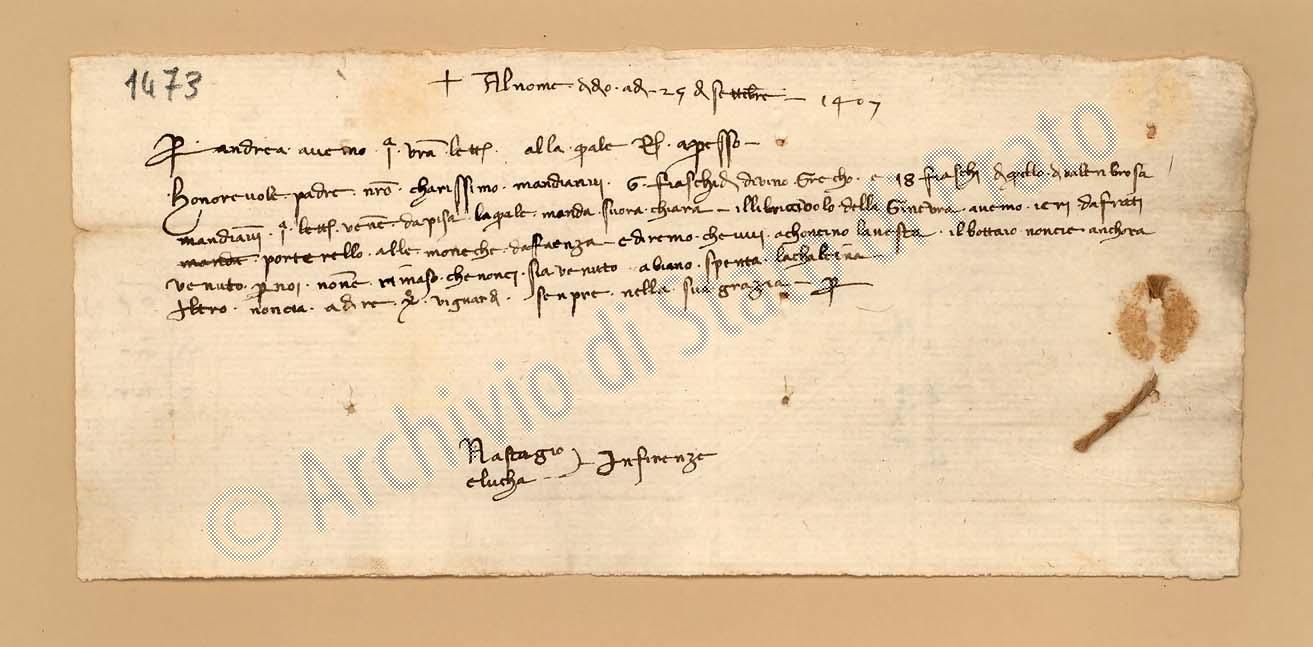 1473
+ Al nome di dio adi 25 di settebre 1407
Per andrea avemo i.ª vrā letta alla quale R. apresso
Honorevole padre nrō charissimo mandianvi 6 fiaschi di vino Grecho e 18 fiaschi di quello di valenbrosa
mandianvi i.ª letta venē da pisa la quale manda suora chiara illibricciuolo della Ginevra avemo ieri da frati
manda porterello alle moneche da faenza e diremo che vivi achoncino la nesta il bottaio noncie anchora
venuto per noi nonē rimaso che nonci sia venuto abiano spenta la chalcina
Altro noncia a dire xº vi guardi senpre nella sua grazia
Nastagio
e lucha
Infirenze
© Archivio di Stato di Prato